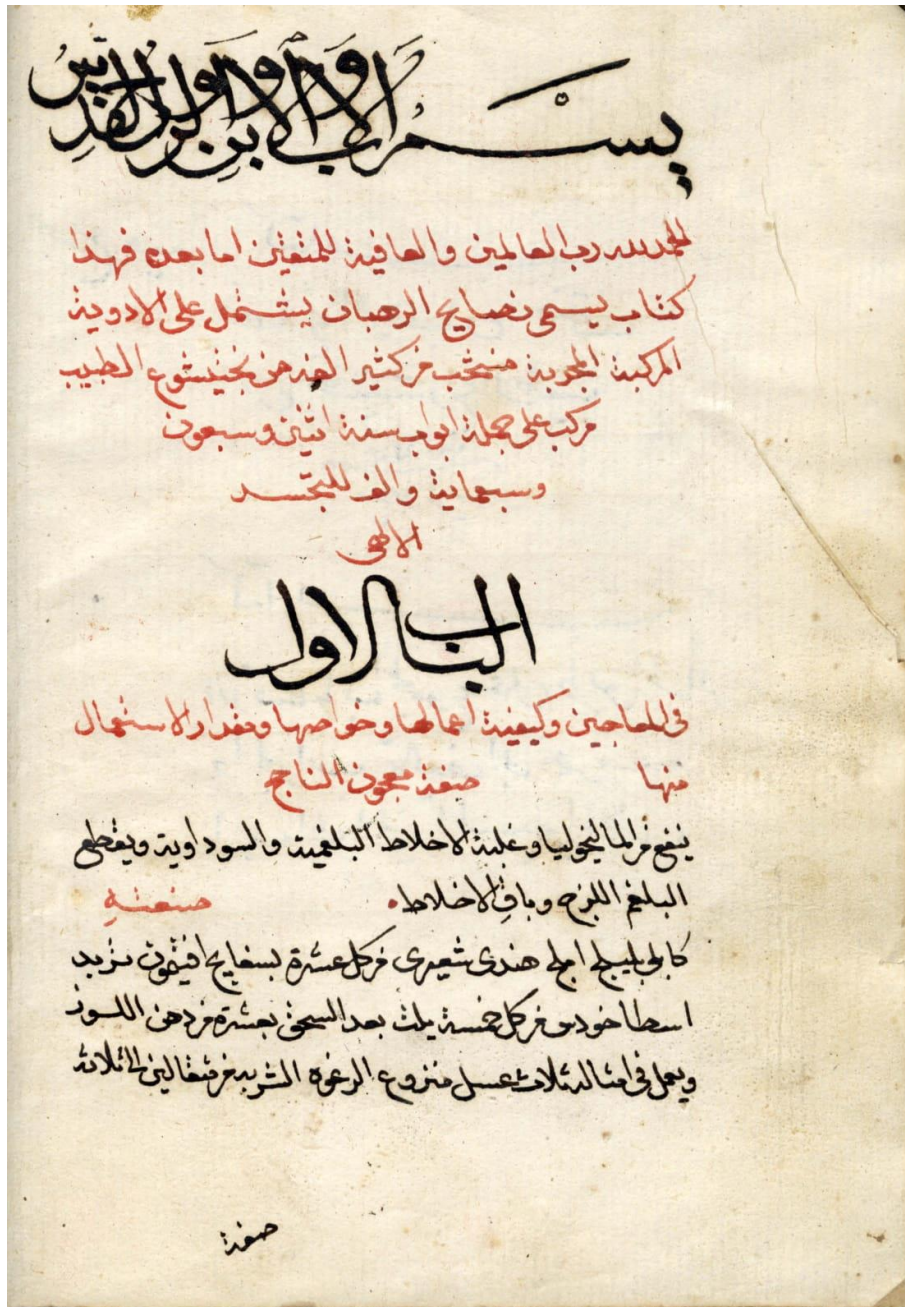 بسم الاب والابن والروح القدس
الحمد لله رب العالمين والعافية للمتقين اما بعده فهذا
كتاب يسمى نصايح الرهبان يشتمل على الادوية
المركبة المجربة منتخب من كثير الفه من بختيشوع الطبيب
مركب على جملة ابواب سنة اثنين وسبعون
وسبعماية والف للتجسد
الالهي
الباب الاول
في المعاجين وكيفية اعمالها وخواصها ومقدار الاستعمال
منها صفة معجون الناجح
ينفع من الماليخوليا وغلبة الاخلاط البلغمية والسوداوية ويقطع
البلغم اللزج وباقي الاخلاط صنعته
كابلي بليلج املج هندي شعيري من كل عشرة بسفايج افيثمون تربد
اسطاخودس من كل خمسة يلث بعد السحق بعشرة من دهن اللوز
ويعمل في امثاله ثلاث عسل منزوع الرغوه الشربه من مثقالين الى ثلاثه
صفة